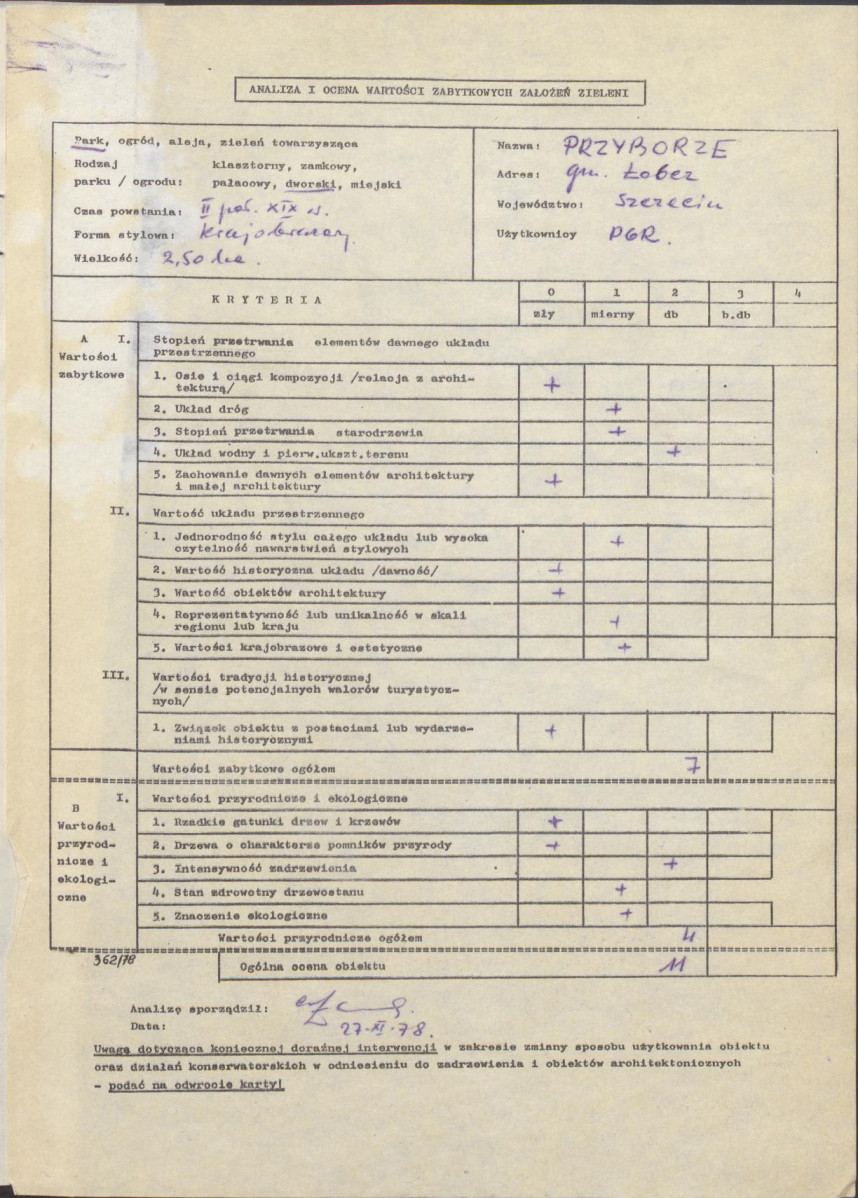 ANALIZA I OCENA WARTOŚCI ZABYTKOWYCH ZAŁOŻEŃ ZIELENI
Park, ogród, aleja, zieleń towarzysząca
Rodzaj klasztorny, zamkowy,
parku / ogrodu: pałacowy, dworski, miejski
Czas powstania: II poł. XIX w.
Forma stylowa: krajobrazowy
Wielkość: 2,50 ha.
Nazwa: PRZYBORZE
Adres: gm. Łobez
Województwo: Szczecin
Użytkownicy PGR.
KRYTERIA 0 1 2 3 4
zły mierny db b.db
A I. Stopień przetrwania elementów dawnego układu
Wartości przestrzennego
zabytkowe 1. Osie i ciągi kompozycji /relacja z archi-
tekturą/ +
2. Układ dróg +
3. Stopień przetrwania starodrzewia +
4. Układ wodny i pierw.ukszt.terenu +
5. Zachowanie dawnych elementów architektury
i małej architektury +
II. Wartość układu przestrzennego
1. Jednorodność stylu całego układu lub wysoka
czytelność nawarstwień stylowych +
2. Wartość historyczna układu /dawność/ +
3. Wartość obiektów architektury +
4. Reprezentatywność lub unikalność w skali
regionu lub kraju +
5. Wartości krajobrazowe i estetyczne +
III. Wartości tradycji historycznej
/w sensie potencjalnych walorów turystycz-
nych/
1. Związek obiektu z postaciami lub wydarze-
niami historycznymi +
Wartości zabytkowe ogółem 7
B I. Wartości przyrodnicze i ekologiczne
Wartości 1. Rzadkie gatunki drzew i krzewów +
przyrod- 2. Drzewa o charakterze pomników przyrody +
nicze i 3. Intensywność zadrzewienia +
ekologi- 4. Stan zdrowotny drzewostanu +
czne 5. Znaczenie ekologiczne +
Wartości przyrodnicze ogółem 4
362/78
Ogólna ocena obiektu 11
Analizę sporządził:
Data: 27-XI-78.
Uwagę dotycząca koniecznej doraźnej interwencji w zakresie zmiany sposobu użytkowania obiektu
oraz działań konserwatorskich w odniesieniu do zadrzewienia i obiektów architektonicznych
- podać na odwrocie karty!